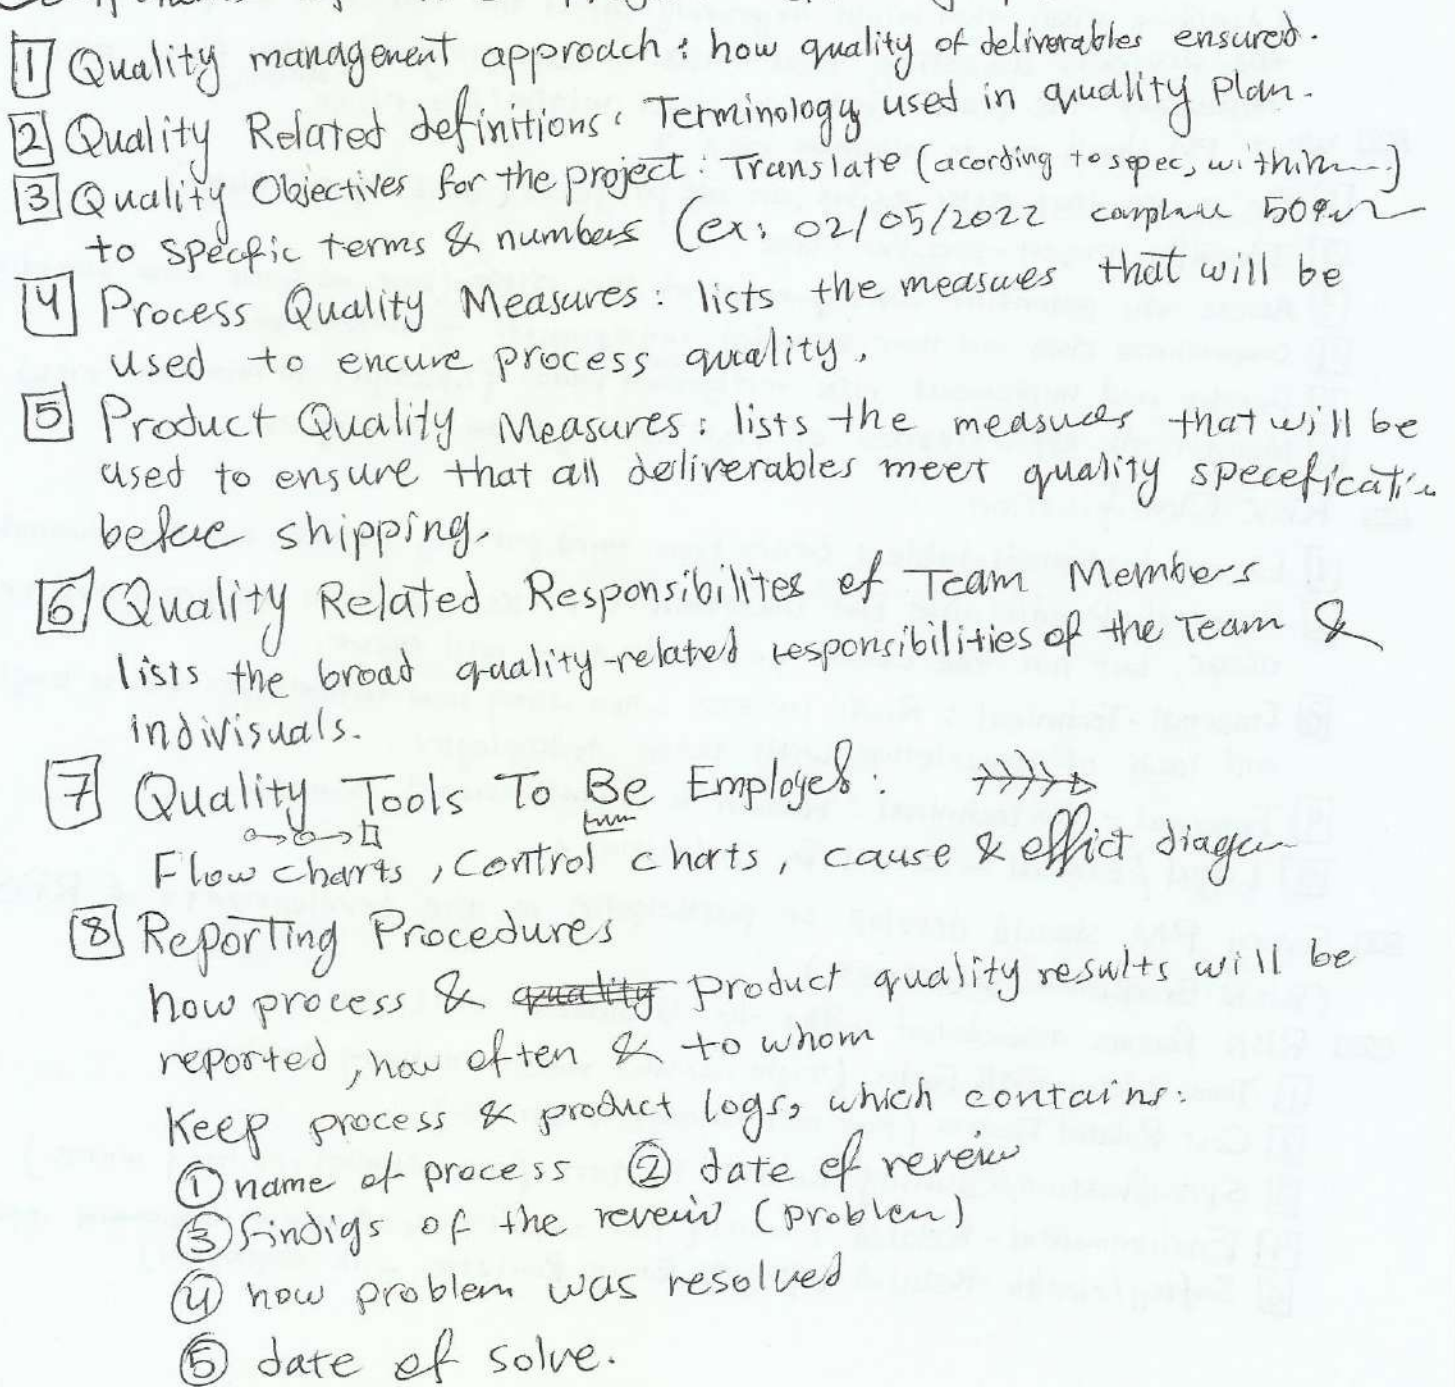 1 Quality management approach : how quality of deliverables ensured.
2 Quality Related definitions : Terminology used in quality plan.
3 Quality Objectives for the project : Translate (acording to spec, within---)
to specfic terms & numbers (ex: 02/05/2022 50%
4 Process Quality Measures : lists the measures that will be
used to encure process quality.
5 Product Quality Measures : lists the measures that will be
used to ensure that all deliverables meet quality
before shipping.
6 Quality Related Responsibilites of Team Members
lists the broad quality-related responsibilities of the Team &
indivisuals.
7 Quality Tools To Be Employed :
Flow charts , Control charts , cause & effict
8 Reporting Procedures
how process & quality product quality results will be
reported , how often & to whom
Keep process & product logs, which contains:
① name of process ② date of reveiw
③ findigs of the reveiw (problem)
④ how problem was resolved
⑤ date of solve.